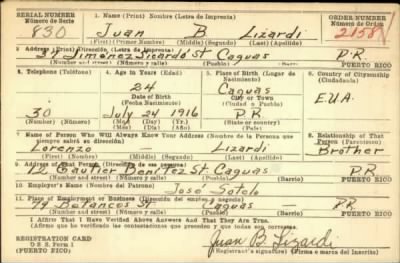 SERIAL NUMBER 1. Name (Print) Nombre (Letra de Imprenta) ORDER NUMBER
Número de Serie Número de Orden
830 Juan B Lizardi 2158
(First) (Primer Nombre) (Middle) (Segundo) (Last) (Apellido)
2. Address (Print) Dirección (Letra de Imprenta)
34 Jiménez Sicardó St Caguas P.R.
(Number and street) (Número y calle) (Town) (Pueblo) (Barrio) PUERTO RICO
3. Telephone (Teléfono) 4. Age in Years (Edad) 5. Place of Birth (Lugar de Nacimiento) 6. Country of Citizenship (Ciudadanía)
24 Caguas
Date of Birth City or Town
(Fecha Nacimiento) (Ciudad o Pueblo) E.U.A.
30 July 24 1916 P.R.
(Number) (Número) (Mo.) (Mes) (Day) (Día) (Yr.) (Año) (State or country) (Estado o país)
7. Name of Person Who Will Always Know Your Address (Nombre de la Persona que siempre sabrá su dirección) 8. Relationship of That Person (Parentesco)
Lorenzo — Lizardi Brother
(First) (Primer Nombre) (Middle) (Segundo) (Last) (Apellido)
9. Address of That Person (Dirección de esa persona)
12 Gautier Benítez St. Caguas P.R.
(Number and street) (Número y calle) (Town) (Pueblo) (Barrio) PUERTO RICO
10. Employer's Name (Nombre del Patrono)
José Sotelo
11. Place of Employment or Business (Dirección del empleo o negocio)
74 Betances St Caguas — P.R.
(Number and street) (Número y calle) (Town) (Pueblo) (Barrio) PUERTO RICO
I Affirm That I Have Verified Above Answers And That They Are True.
(Afirmo que he verificado las contestaciones que preceden y que todas son correctas.)
REGISTRATION CARD
D S S Form 1
(9-28-40) Juan B. Lizardi
Registrant's signature) (Firma o marca del Inscrito)